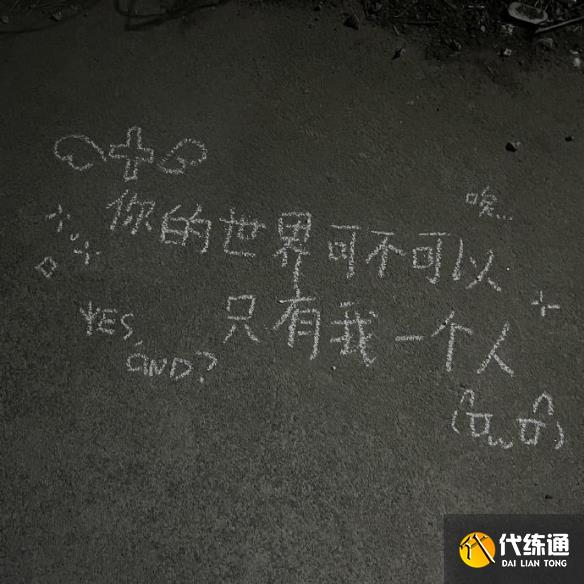 唉...
你的世界可不可以
只有我一个人
YES,
AND?
代练通
DAI LIAN TONG